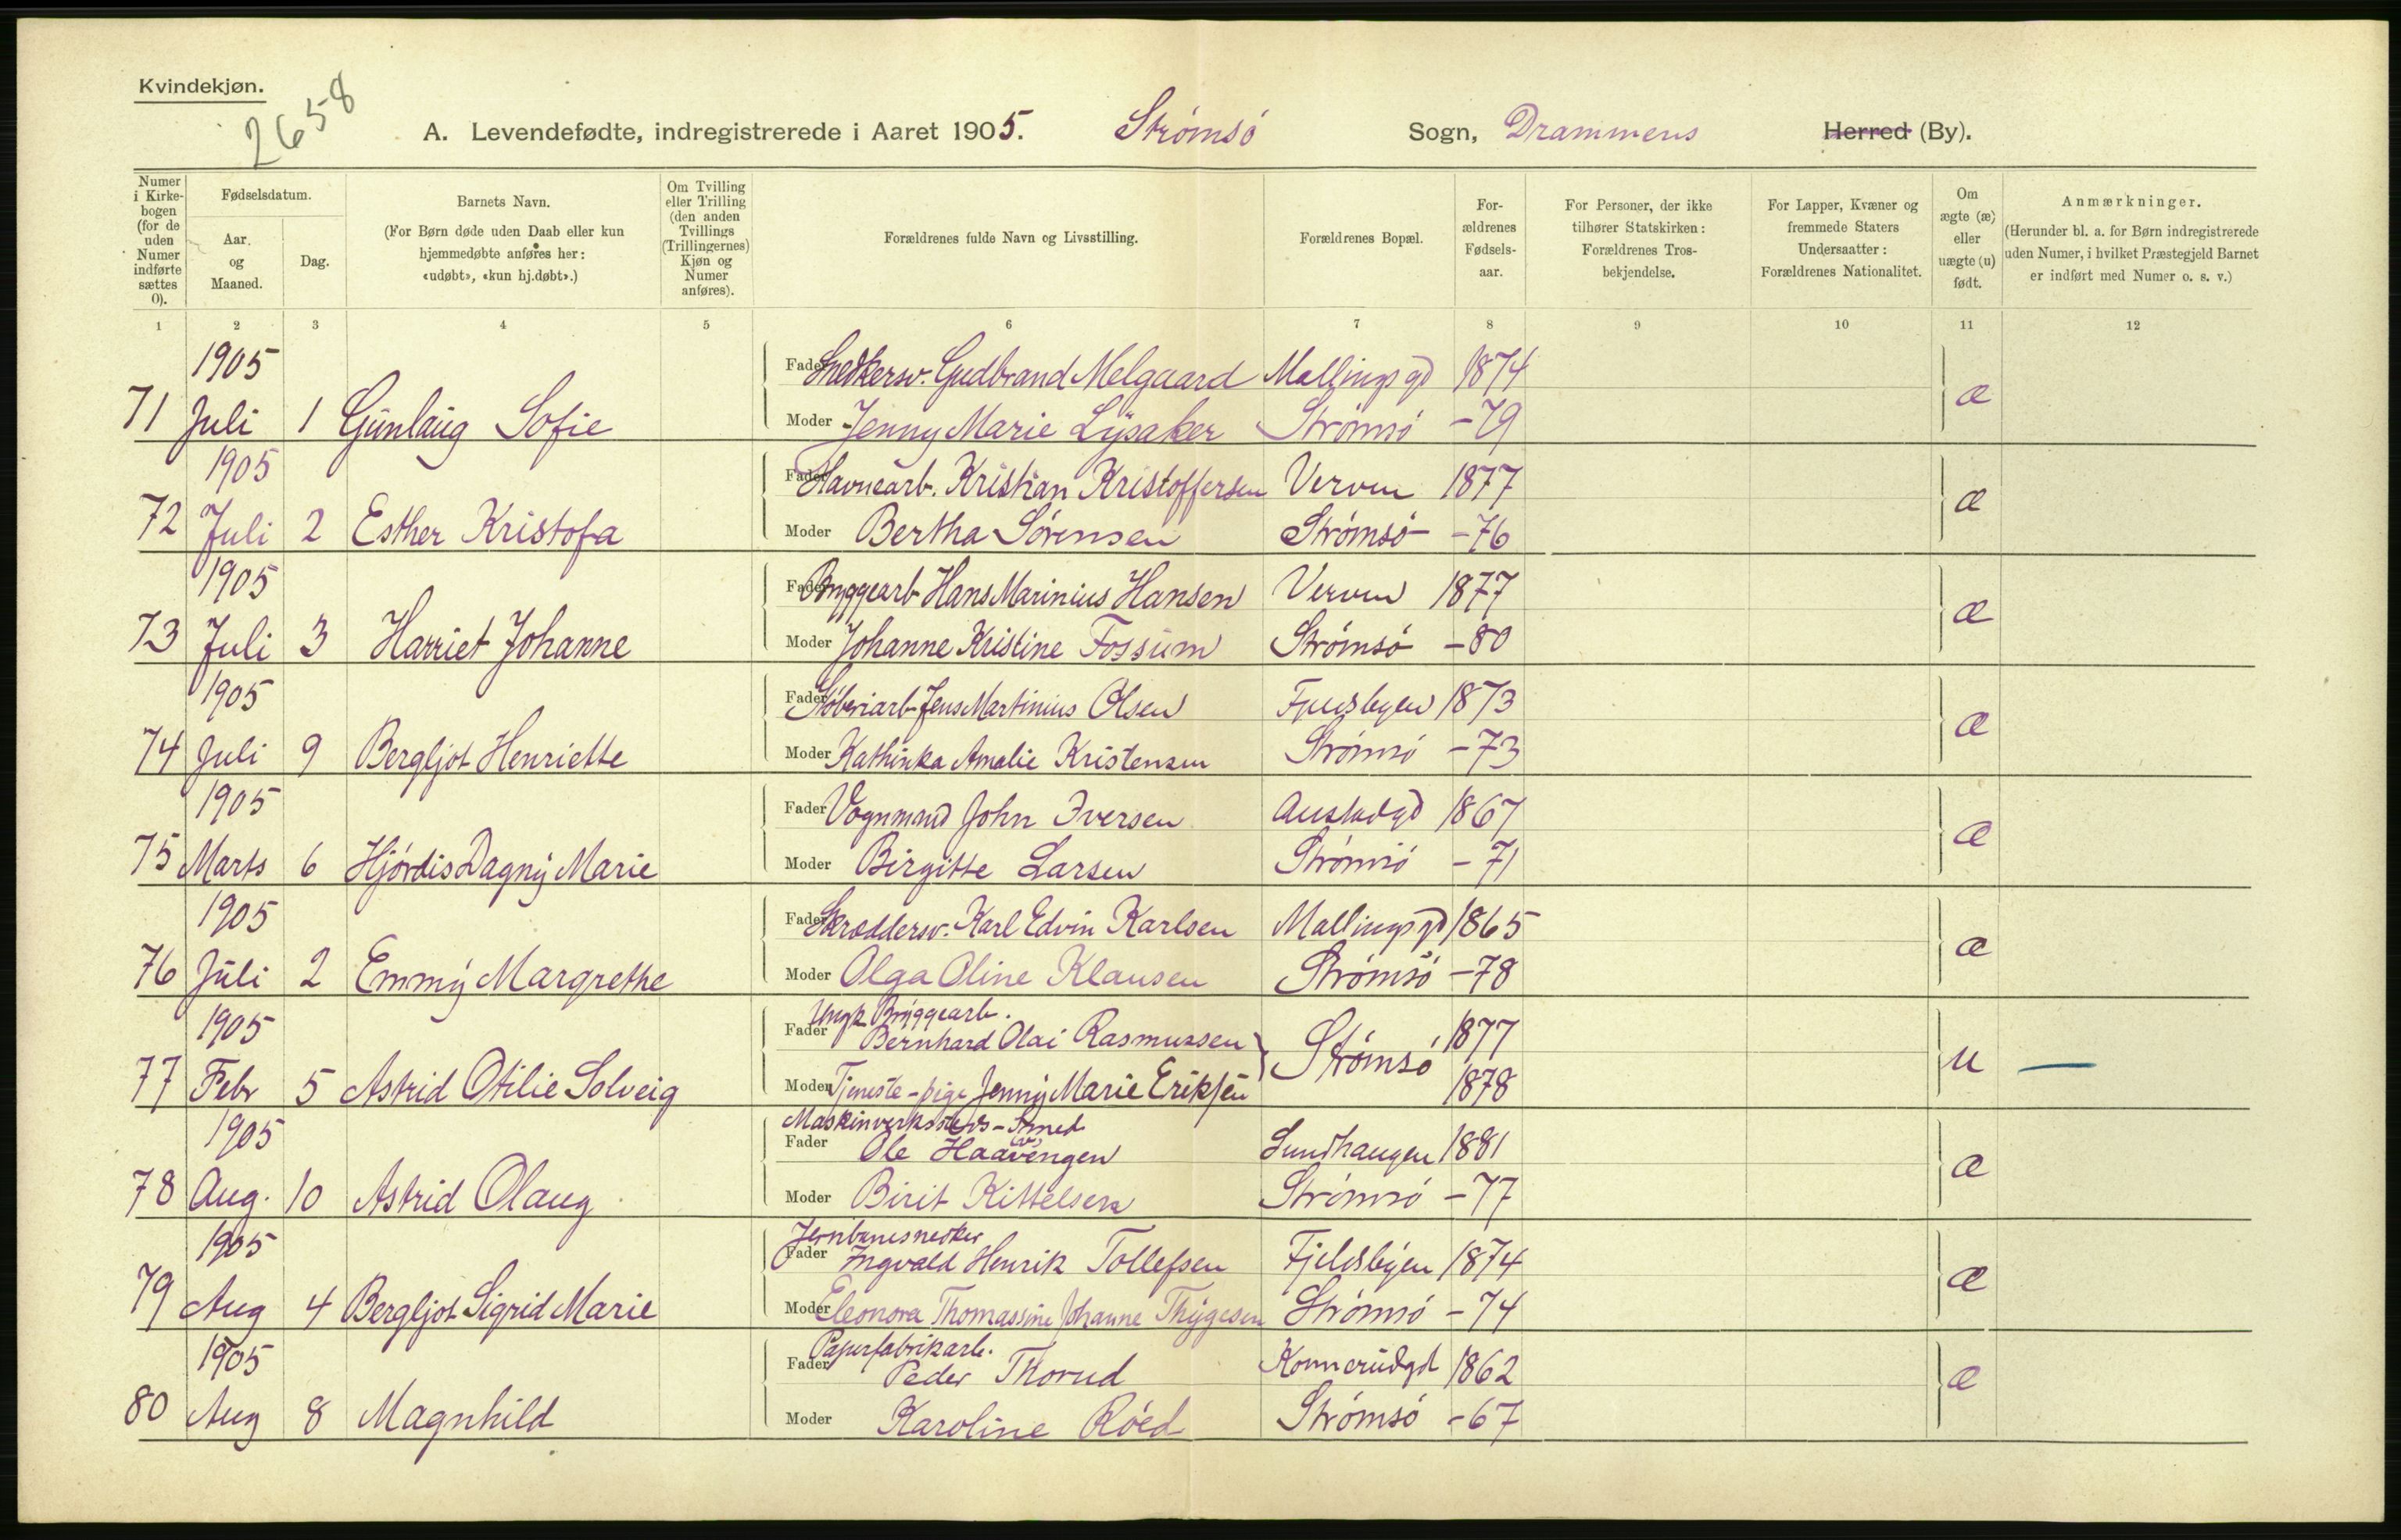 Kvindekjøn.
2658
A. Levendefødte, indregistrerede i Aaret 1905. Strømsø Sogn, Drammens Herred (By).
Numer i Kirkebogen (for de uden Numer indførte sættes 0).
Fødselsdatum.
Aar og Maaned.
Dag.
Barnets Navn.
(For Børn døde uden Daab eller kun hjemmedøbte anføres her: «udøbt», «kun hj.døbt».)
Om Tvilling eller Trilling (den anden Tvillings (Trillingernes) Kjøn og Numer anføres).
Forældrenes fulde Navn og Livsstilling.
Forældrenes Bopæl.
Forældrenes Fødselsaar.
For Personer, der ikke tilhører Statskirken: Forældrenes Trosbekjendelse.
For Lapper, Kvæner og fremmede Staters Undersaatter: Forældrenes Nationalitet.
Om ægte (æ) eller uægte (u) født.
Anmærkninger.
(Herunder bl. a. for Børn indregistrerede uden Numer, i hvilket Præstegjeld Barnet er indført med Numer o. s. v.)
1 2 3 4 5 6 7 8 9 10 11 12
1905 Fader Snedkersv. Gudbrand Melgaard Mallings gd 1874 æ
71 Juli 1 Gunlaug Sofie Moder Jenny Marie Lysaker Strømsø -79
1905 Fader Havnearb. Kristian Kristoffersen Verven 1877 æ
72 Juli 2 Esther Kristofa Moder Bertha Sørensen Strømsø -76
1905 Fader Bryggearb Hans Marinius Hansen Verven 1877 æ
73 Juli 3 Harriet Johanne Moder Johanne Kristine Fossum Strømsø -80
1905 Fader Støberiarb Jens Martinius Olsen Fjeldsbyen 1873 æ
74 Juli 9 Bergljot Henriette Moder Kathinka Amalie Kristensen Strømsø -73
1905 Fader Vognmand John Iversen Austadgd 1867 æ
75 Marts 6 Hjørdis Dagny Marie Moder Birgitte Larsen Strømsø -71
1905 Fader Skræddersv. Karl Edvin Karlsen Mallings gd 1865 æ
76 Juli 2 Emmy Margrethe Moder Olga Oline Klausen Strømsø -78
Ungk. Bryggearb.
1905 Fader Bernhard Olai Rasmussen Strømsø 1877 u —
77 Febr 5 Astrid Otilie Solveig Moder Tjeneste-pige Jenny Marie Eriksen 1878
Maskinverksteds-Smed
1905 Fader Ole Haavengen (v) Sundhaugen 1881 æ
78 Aug. 10 Astrid Olaug Moder Birit Kittelsen Strømsø -77
Jernbanesnedker
1905 Fader Ingvald Henrik Tollefsen Fjeldsbyen 1874 æ
79 Aug 4 Bergljot Sigrid Marie Moder Eleonora Thomassine Johanne Thygesen Strømsø -74
Papirfabrikarb.
1905 Fader Peder Thorud Konnerudgd 1862 æ
80 Aug 8 Magnhild Moder Karoline Røed Strømsø -67